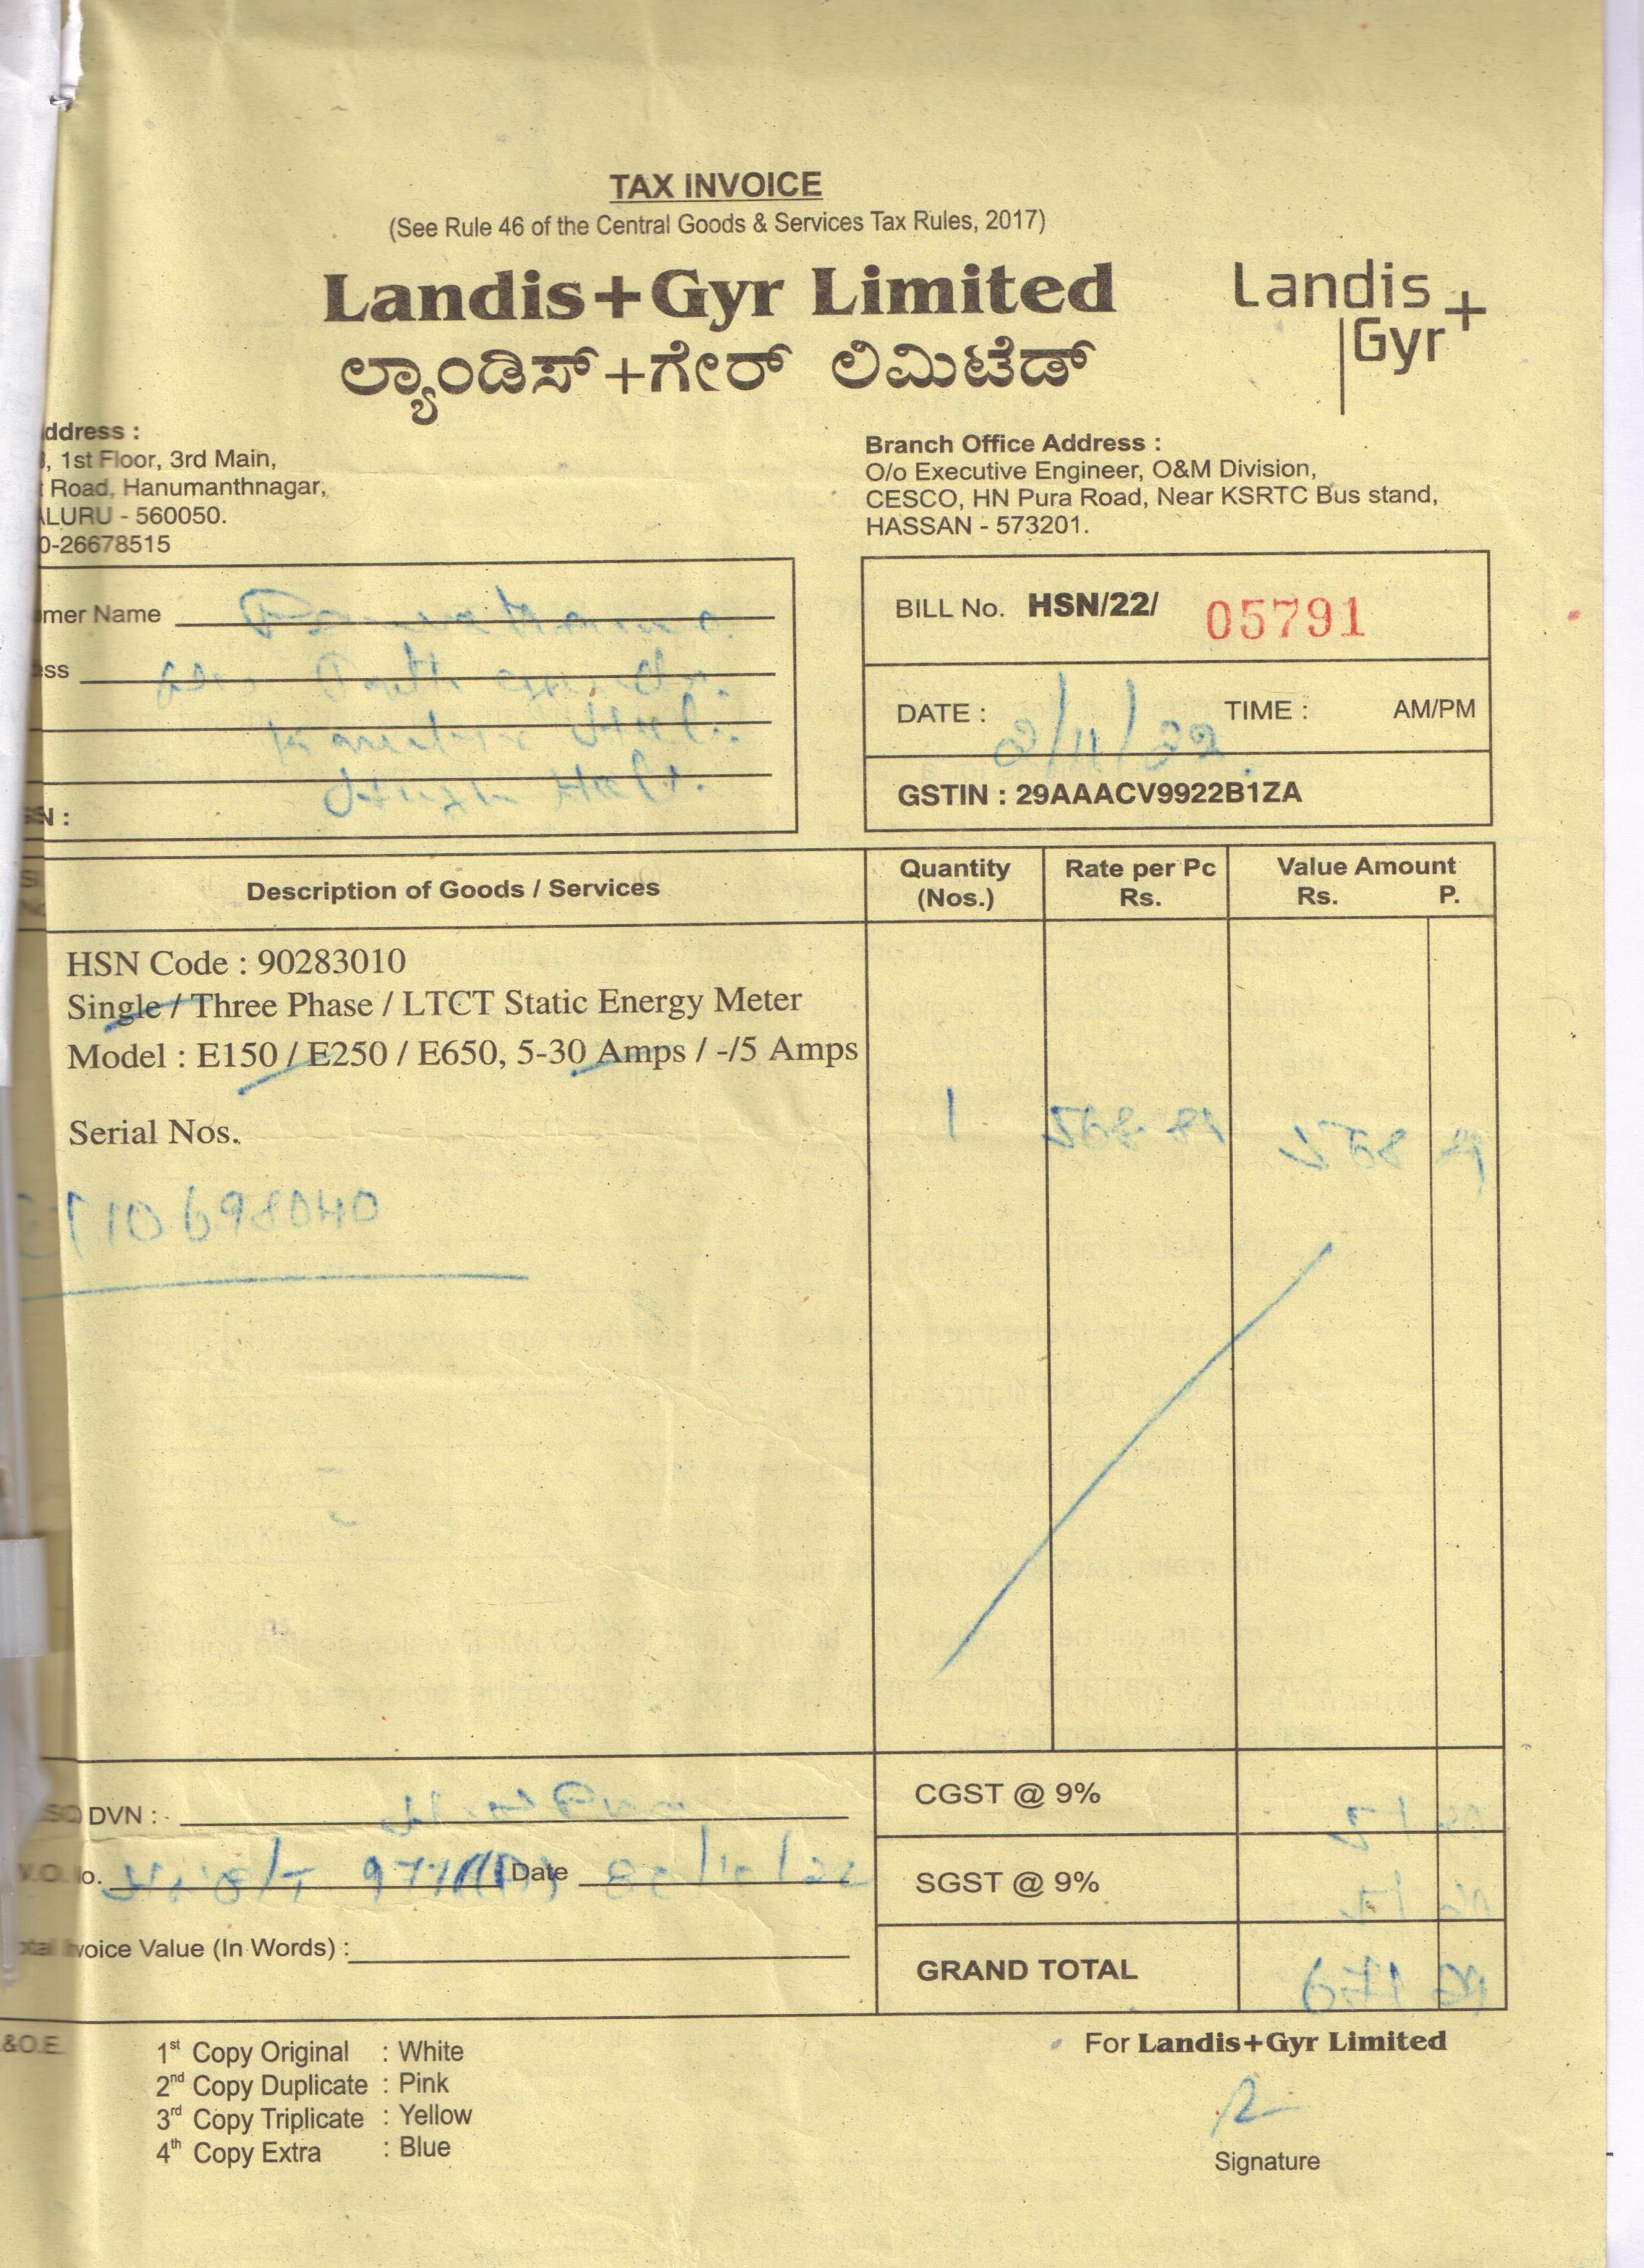 TAX INVOICE
(See Rule 46 of the Central Goods & Services Tax Rules, 2017)
Landis+Gyr Limited
ಲ್ಯಾಂಡಿಸ್+ಗೇರ್ ಲಿಮಿಟೆಡ್
Landis+
Gyr
ddress :
, 1st Floor, 3rd Main,
Road, Hanumanthnagar,
ALURU - 560050.
0-26678515
Branch Office Address :
O/o Executive Engineer, O&M Division,
CESCO, HN Pura Road, Near KSRTC Bus stand,
HASSAN - 573201.
mer Name
ess
N :
BILL No. HSN/22/ 05791
DATE : 2/11/22 TIME : AM/PM
GSTIN : 29AAACV9922B1ZA
Description of Goods / Services
Quantity (Nos.)
Rate per Pc Rs.
Value Amount Rs. P.
HSN Code : 90283010
Single / Three Phase / LTCT Static Energy Meter
Model : E150 / E250 / E650, 5-30 Amps / -/5 Amps
Serial Nos. 1
110698040
DVN :-
W.O. No. Date
Invoice Value (In Words) :
CGST @ 9%
SGST @ 9%
GRAND TOTAL
&O.E.
1st Copy Original : White
2nd Copy Duplicate : Pink
3rd Copy Triplicate : Yellow
4th Copy Extra : Blue
For Landis+Gyr Limited
Signature